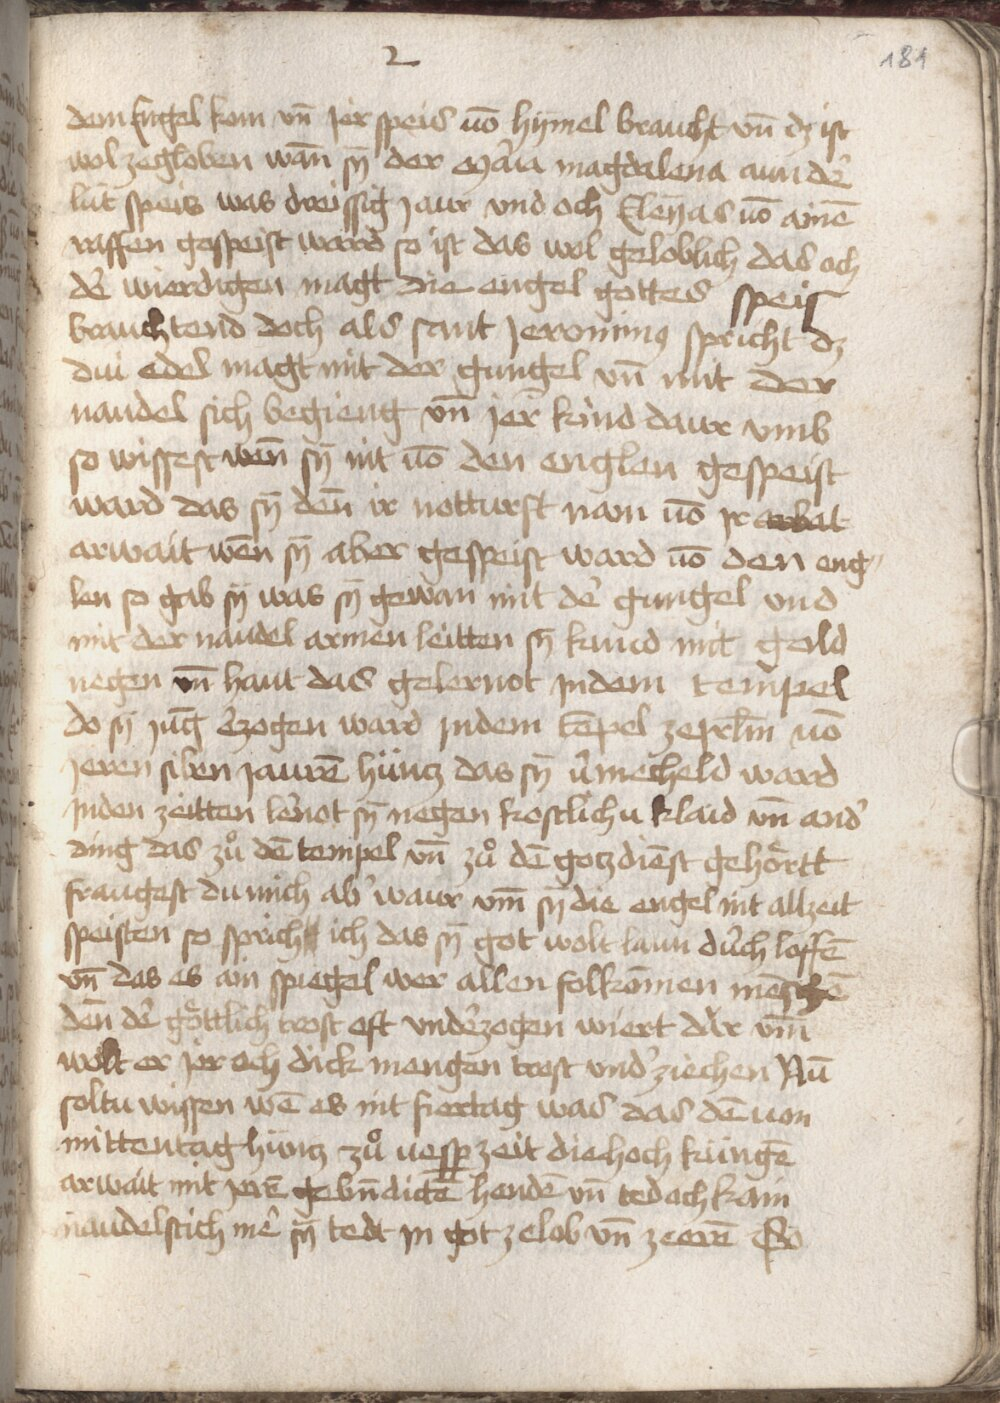 2
181
dem Engel kom vn̄ jer speis uō hymel braucht vn̄ dz ist
wol zegloben wān sÿ der maria magdalena aun der
lut speis was dreissig jaur vnd och Elenas uō ainē
raffen gespeist ward so ist das wol geloblich das och
der wierdigen magt die engel gottes speis
brauchtend doch als sant Jeronimus spricht dz
dui edel magt mit der gungel vn̄ mit der
naudel sich begieng vn̄ jer kind daur vmb
so wissest wen̄ sÿ nit uō den englen gespeist
ward das sÿ den̄ ir notturft nam uō jr arbat
arwait wen̄ sÿ aber gespeist ward uō den eng
len so gab sÿ was sÿ gewan mit der gungel vnd
mit der naudel armen leitten sÿ kund mit gold
negen vn̄ haut das gelernot Jndem tempel
do sÿ jūg erzogen ward jndem tēpel uō
jeren siben jaurē hüntz das sÿ vermecheld ward
jnden zeitten lernot sÿ negen kostlichu klaid vn̄ ander
ding das zuͦ dē tempel vn̄ zuͦ dē gotzdiēst gehörtt
fraugest du mich aber waur vm̄ sÿ die engel nit allzeit
speisten so sprich ich das sÿ got wolt laun durch loffē
vn̄ das es ain spiegel wer allen folkōmen menschē
den̄ der göttlich trost oft vnderzogen wiert dar vm̄
wolt er jer och dick mengen trost vnderziechen Nū
soltu wissen wē es nit fiertag was das dē uon
mittentag hüntz zuͦ uesperzeit die hoch küngē
arwait mit jerē hendē vn̄ tedoch kain
naudelstich me sÿ tedt jn got zelob vn̄ zeerē So